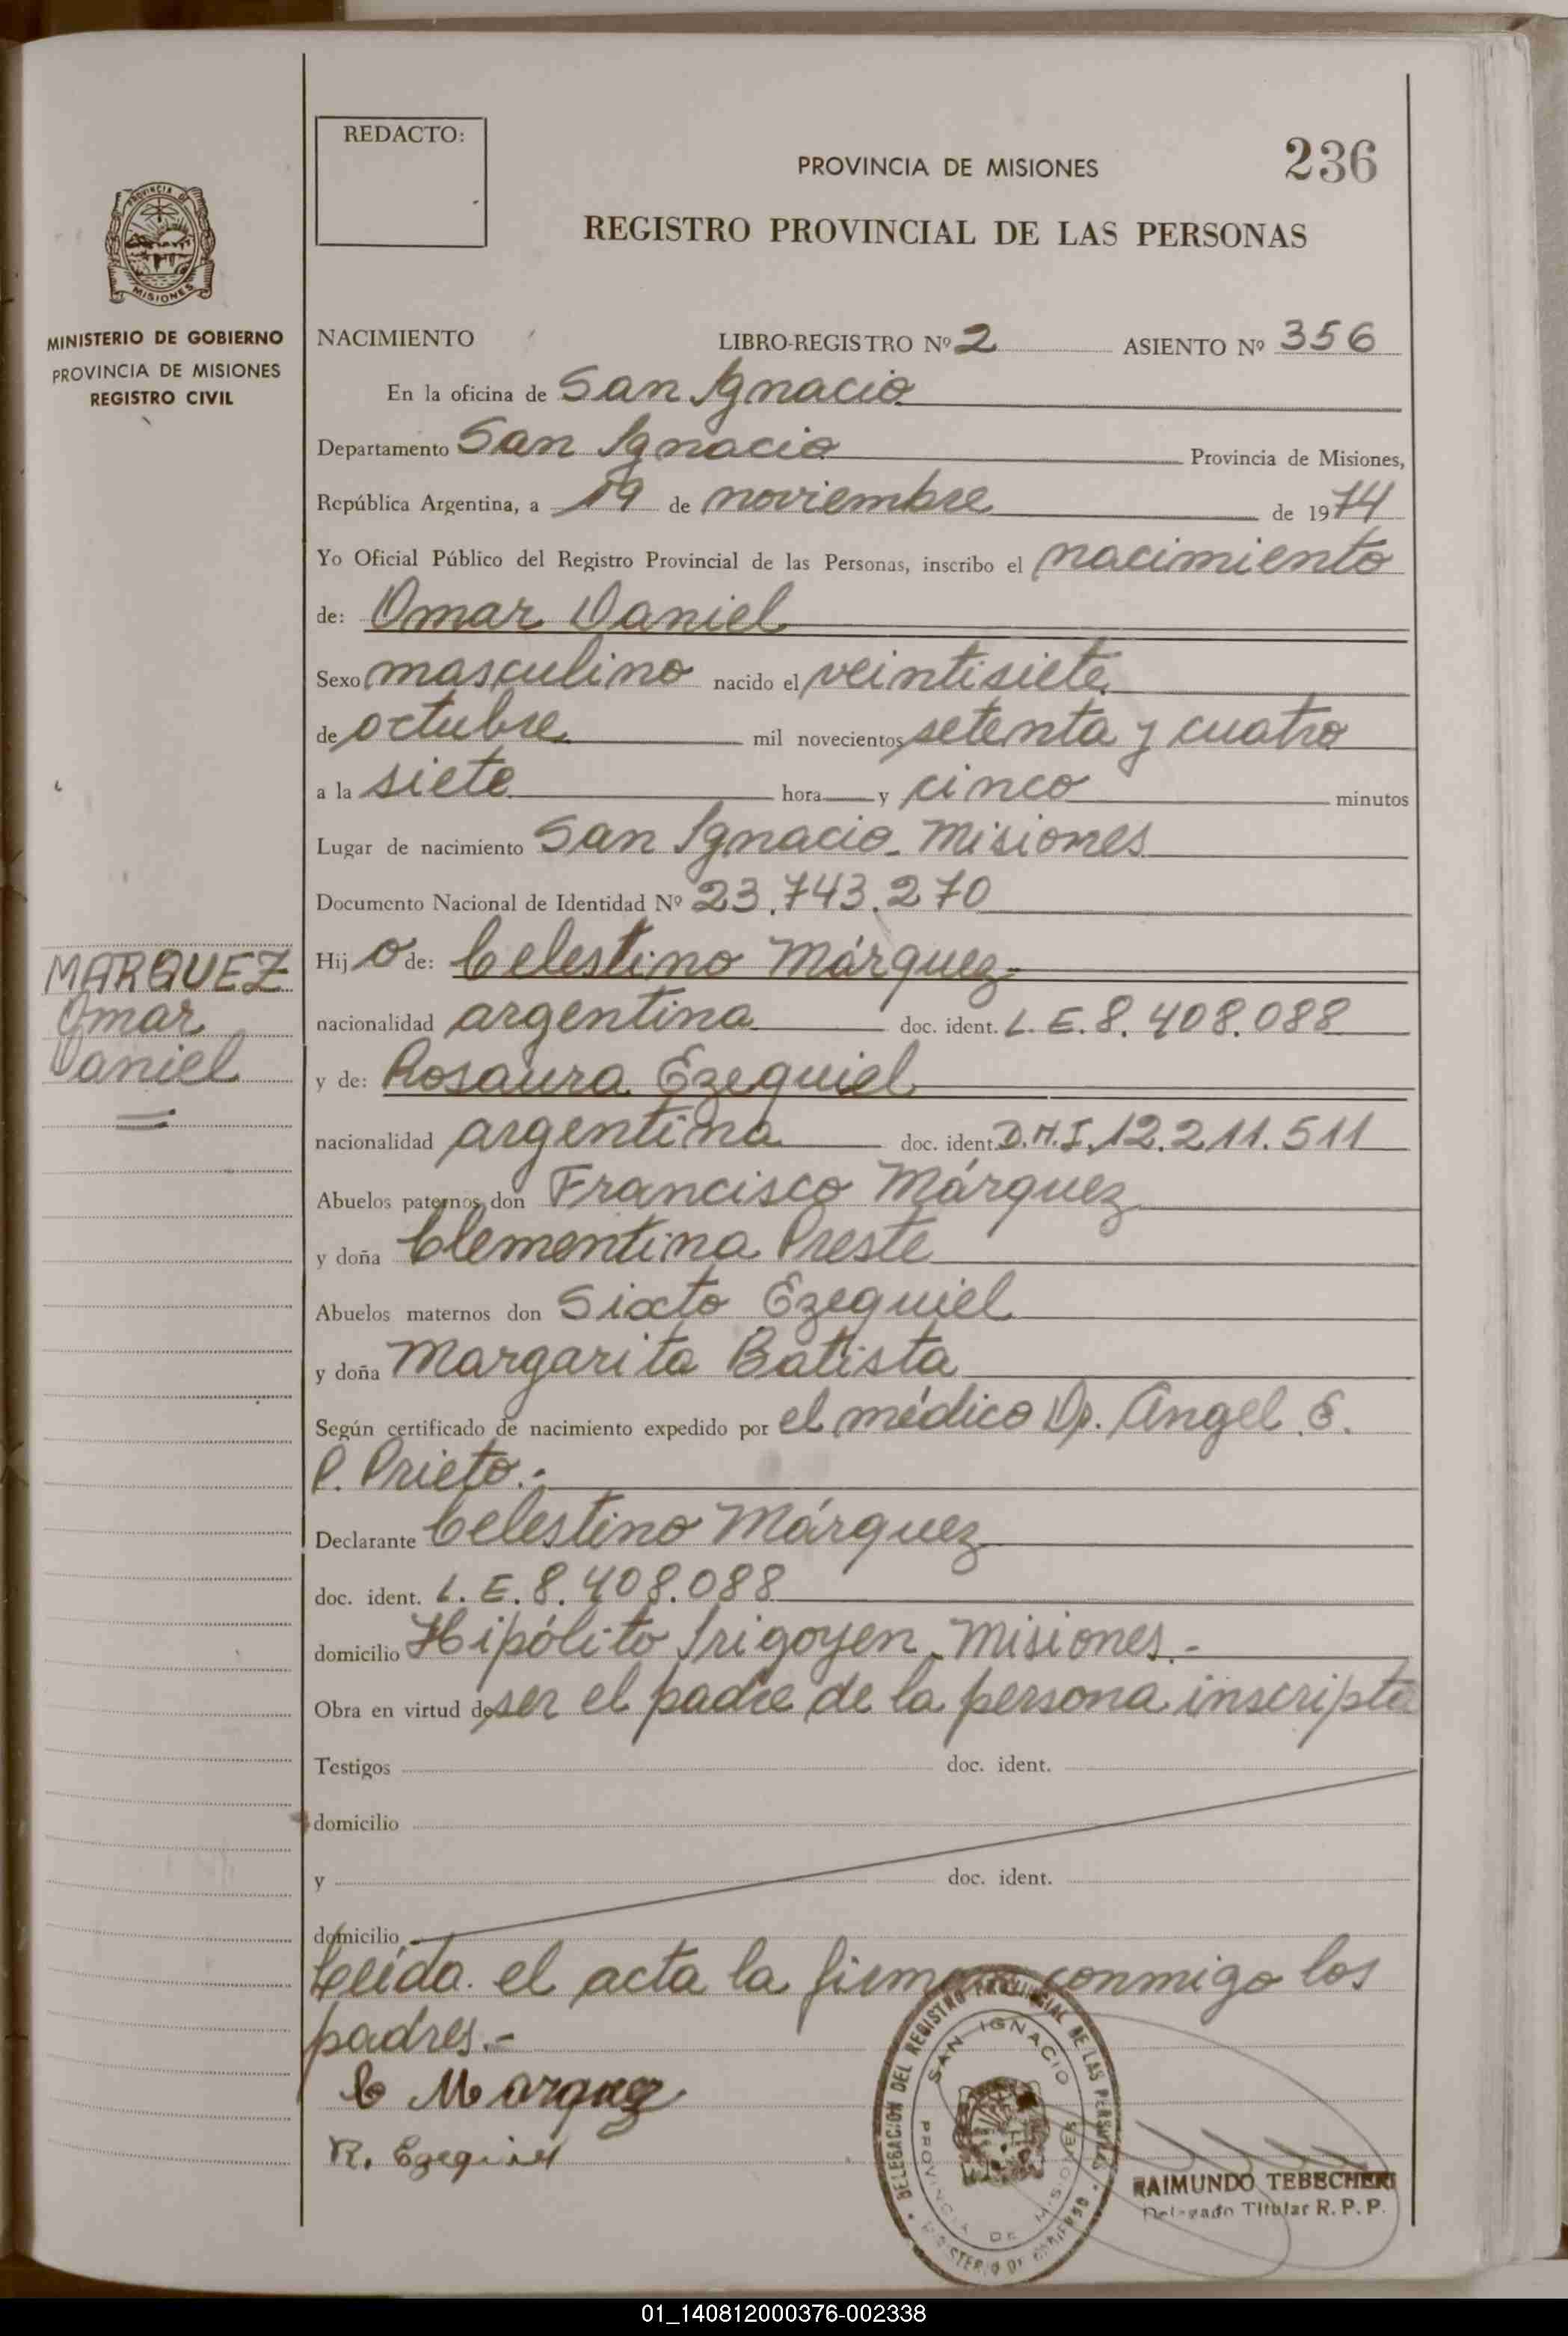 REDACTO:
PROVINCIA DE MISIONES
236
REGISTRO PROVINCIAL DE LAS PERSONAS
PROVINCIA DE
MISIONES
MINISTERIO DE GOBIERNO
PROVINCIA DE MISIONES
REGISTRO CIVIL
NACIMIENTO LIBRO-REGISTRO Nº 2 ASIENTO Nº 356
En la oficina de San Ignacio
Departamento San Ignacio Provincia de Misiones,
República Argentina, a 19 de noviembre de 1974
Yo Oficial Público del Registro Provincial de las Personas, inscribo el nacimiento
de: Omar Daniel
Sexo masculino nacido el veintisiete
de octubre mil novecientos setenta y cuatro
a la siete hora y cinco minutos
Lugar de nacimiento San Ignacio - Misiones
Documento Nacional de Identidad Nº 23.743.270
MARQUEZ
Omar
Daniel
Hij o de: Celestino Márquez
nacionalidad argentina doc. ident. L.E. 8.408.088
y de: Rosaura Ezequiel
nacionalidad argentina doc. ident. D.N.I. 12.211.511
Abuelos paternos don Francisco Márquez
y doña Clementina Preste
Abuelos maternos don Sixto Ezequiel
y doña Margarita Batista
Según certificado de nacimiento expedido por el médico Dr. Angel E.
P. Prieto.-
Declarante Celestino Márquez
doc. ident. L.E. 8.408.088
domicilio Hipólito Irigoyen - Misiones.-
Obra en virtud de ser el padre de la persona inscripta
Testigos doc. ident.
domicilio
y doc. ident.
domicilio
Leída el acta la firman conmigo los
padres.-
C Marquez
R. Ezequiel
DELEGACION DEL REGISTRO PROVINCIAL DE LAS PERSONAS
SAN IGNACIO
PROVINCIA DE MISIONES
MINISTERIO DE GOBIERNO
RAIMUNDO TEBECHERI
Delegado Titular R. P. P.
01_140812000376-002338